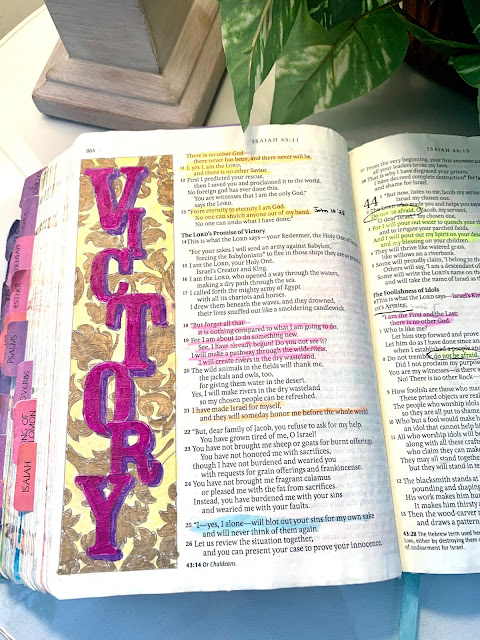 904
ISAIAH 43:11
VICTORY
There is no other God—
there never has been, and there never will be.
11 I, yes I, am the LORD,
and there is no other Savior.
12 First I predicted your rescue,
then I saved you and proclaimed it to the world.
No foreign god has ever done this.
You are witnesses that I am the only God,"
says the LORD.
13 "From eternity to eternity I am God.
No one can snatch anyone out of my hand.
No one can undo what I have done."
The LORD's Promise of Victory
14 This is what the LORD says—your Redeemer, the Holy One
"For your sakes I will send an army against Babylon,
forcing the Babylonians* to flee in those ships they are so
15 I am the LORD, your Holy One,
Israel's Creator and King.
16 I am the LORD, who opened a way through the waters,
making a dry path through the sea.
17 I called forth the mighty army of Egypt
with all its chariots and horses.
I drew them beneath the waves, and they drowned,
their lives snuffed out like a smoldering candlewick.
18 "But forget all that—
it is nothing compared to what I am going to do.
19 For I am about to do something new.
See, I have already begun! Do you not see it?
I will make a pathway through the wilderness.
I will create rivers in the dry wasteland.
20 The wild animals in the fields will thank me,
the jackals and owls, too,
for giving them water in the desert.
Yes, I will make rivers in the dry wasteland
so my chosen people can be refreshed.
21 I have made Israel for myself,
and they will someday honor me before the whole world.
22 "But, dear family of Jacob, you refuse to ask for my help.
You have grown tired of me, O Israel!
23 You have not brought me sheep or goats for burnt offerings.
You have not honored me with sacrifices,
though I have not burdened and wearied you
with requests for grain offerings and frankincense.
24 You have not brought me fragrant calamus
or pleased me with the fat from sacrifices.
Instead, you have burdened me with your sins
and wearied me with your faults.
25 "I—yes, I alone—will blot out your sins for my own sake
and will never think of them again.
26 Let us review the situation together,
and you can present your case to prove your innocence.
43:14 Or Chaldeans.
27 From the very beginning, your first ancestor
all your leaders broke my laws.
28 That is why I have disgraced your
I have decreed complete destruction* for
and shame for Israel.
44 1 "But now, listen to me, Jacob my
Israel my chosen one.
2 The LORD who made you and helps you says
Do not be afraid, O Jacob, my servant,
O dear Israel,* my chosen one.
3 For I will pour out water to quench your
and to irrigate your parched fields.
And I will pour out my Spirit on your
and my blessing on your children.
4 They will thrive like watered grass,
like willows on a riverbank.
5 Some will proudly claim, 'I belong to the
Others will say, 'I am a descendant of
Some will write the LORD's name on their
and will take the name of Israel as
The Foolishness of Idols
6 This is what the LORD says—Israel's King
Armies:
"I am the First and the Last;
there is no other God.
7 Who is like me?
Let him step forward and prove
Let him do as I have done since
when I established a people
8 Do not tremble; do not be afraid.
Did I not proclaim my purposes
You are my witnesses—is there
No! There is no other Rock—
9 How foolish are those who
These prized objects are really
The people who worship idols
so they are all put to shame.
10 Who but a fool would make
an idol that cannot help
11 All who worship idols will be
along with all these
who claim they can make
They may all stand together
but they will stand in
12 The blacksmith stands at
pounding and shaping
His work makes him
It makes him thirsty
13 Then the wood-carver
and draws a pattern
43:28 The Hebrew term used here
LORD, either by destroying them
of endearment for Israel.
PSALMS
PROVERBS
SONG OF SOLOMON
ISAIAH